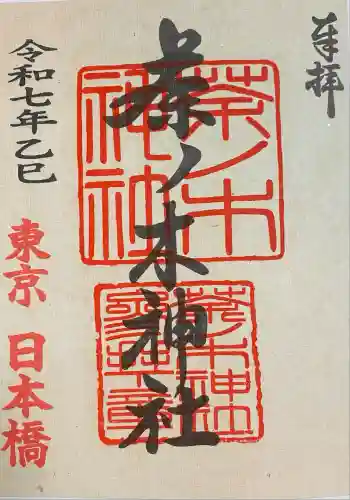 奉拝
茶ノ木神社
茶ノ木神社
茶ノ木神社
令和七年乙巳
東京 日本橋